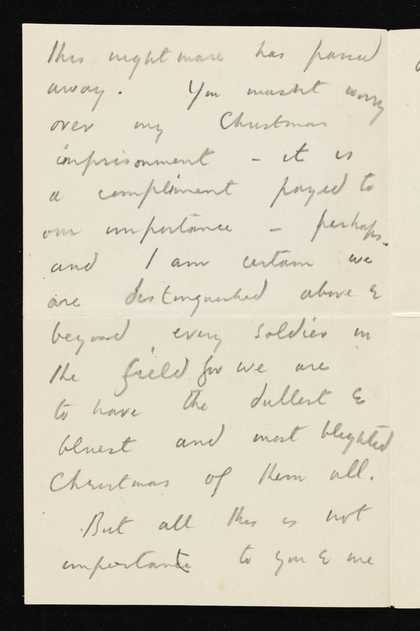 this nightmare has passed
away. You mustnt worry
over my Christmas
imprisonment - it is
a compliment payed to
our importance - perhaps -
and I am certain we
are distinguished above &
beyond every soldier in
the field for we are
to have the dullest &
bluest and most blighted
Christmas of them all.
But all this is not
important to you & me